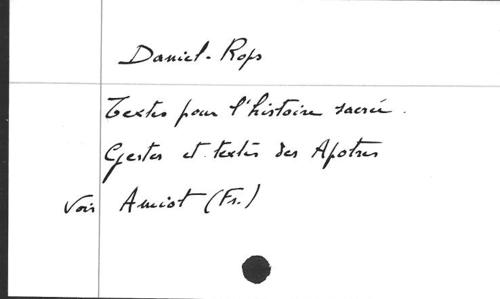 Daniel-Rops
Textes pour l'histoire sacrée.
Gestes et textes des Apotres
Voir Amiot (Fr.)